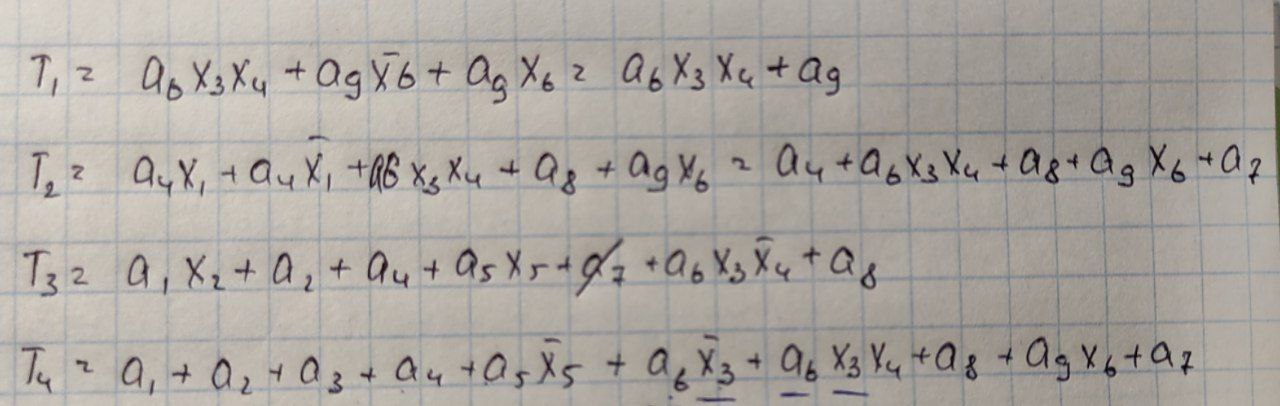 T₁ = a₆x₃x₄ + a₉x̄₆ + a₉x₆ = a₆x₃x₄ + a₉
T₂ = a₄x₁ + a₄x̄₁ + a₆x₃x₄ + a₈ + a₉x₆ = a₄ + a₆x₃x₄ + a₈ + a₉x₆ + a₇
T₃ = a₁x₂ + a₂ + a₄ + a₅x₅ + a₇ + a₆x₃x̄₄ + a₈
T₄ = a₁ + a₂ + a₃ + a₄ + a₅x̄₅ + a₆x̄₃ + a₆x₃x₄ + a₈ + a₉x₆ + a₇